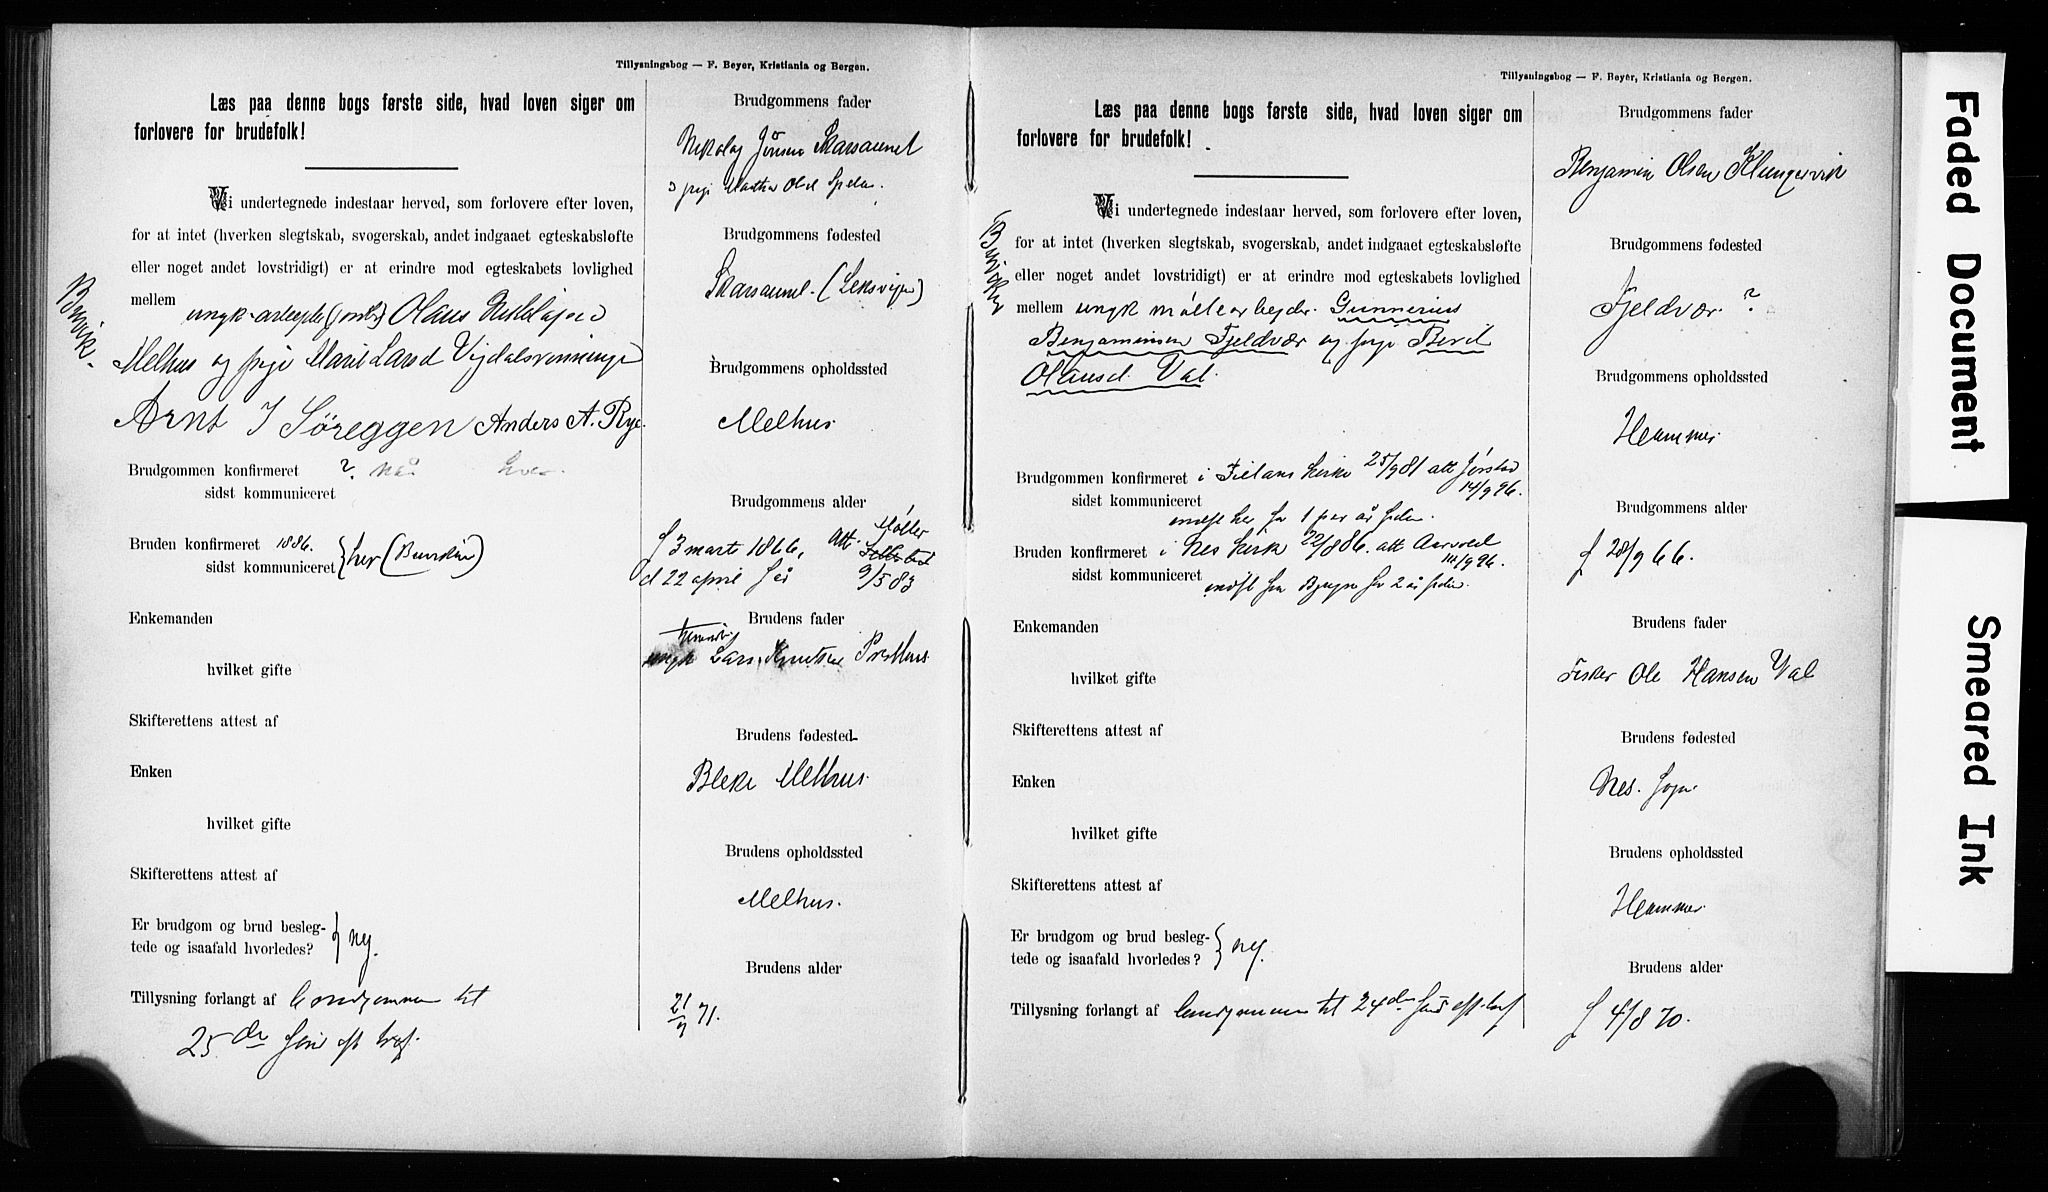 Tillysningsbog — F. Beyer, Kristiania og Bergen.
Læs paa denne bogs første side, hvad loven siger om
forlovere for brudefolk!
Vi undertegnede indestaar herved, som forlovere efter loven,
for at intet (hverken slegtskab, svogerskab, andet indgaaet egteskabsløfte
eller noget andet lovstridigt) er at erindre mod egteskabets lovlighed
mellem ungk. Olaus
Melhus og pige Marit Larsd
Arnt J Söreggen Anders A. Rye.
Brudgommen konfirmeret ?
sidst kommuniceret
Bruden konfirmeret 1886. } her
sidst kommuniceret
Enkemanden
hvilket gifte
Skifterettens attest af
Enken
hvilket gifte
Skifterettens attest af
Er brudgom og brud besleg-
tede og isaafald hvorledes? } nej.
Tillysning forlangt af brudgommen til
25de
Brudgommens fader
Nikolay Jönsen Skarsaunet
pige
Brudgommens fødested
Skarsaunet. (Leksvigen)
Brudgommens opholdssted
Melhus.
Brudgommens alder
f 3 marts 1866, att. Möller
d 22 april 9/5 83
Brudens fader
Lars Knutsen
Brudens fødested
Melhus.
Brudens opholdssted
Melhus.
Brudens alder
21/9 71.
Tillysningsbog — F. Beyer, Kristiania og Bergen.
Læs paa denne bogs første side, hvad loven siger om
forlovere for brudefolk!
Vi undertegnede indestaar herved, som forlovere efter loven,
for at intet (hverken slegtskab, svogerskab, andet indgaaet egteskabsløfte
eller noget andet lovstridigt) er at erindre mod egteskabets lovlighed
mellem ungk møllearbejder Gunnerius
Benjaminsen Fjeldvær og pige Berit
Olausd. Val.
Brudgommen konfirmeret i kirke 25/9 81 att Jørstad
14/9 96.
sidst kommuniceret
her for 1 par år siden.
Bruden konfirmeret i Nes kirk 22/8 86. att
sidst kommuniceret
for 2 år siden.
Enkemanden
hvilket gifte
Skifterettens attest af
Enken
hvilket gifte
Skifterettens attest af
Er brudgom og brud besleg-
tede og isaafald hvorledes? } nej.
Tillysning forlangt af brudgommen til 24de
Brudgommens fader
Benjamin Olsen Klungervik
Brudgommens fødested
Fjeldvær. ?
Brudgommens opholdssted
Hammer
Brudgommens alder
f 28/9 66.
Brudens fader
Fisker Ole Hansen Val
Brudens fødested
Nes. sogn
Brudens opholdssted
Hammer
Brudens alder
f 4/8 70.
Faded Document
Smeared Ink